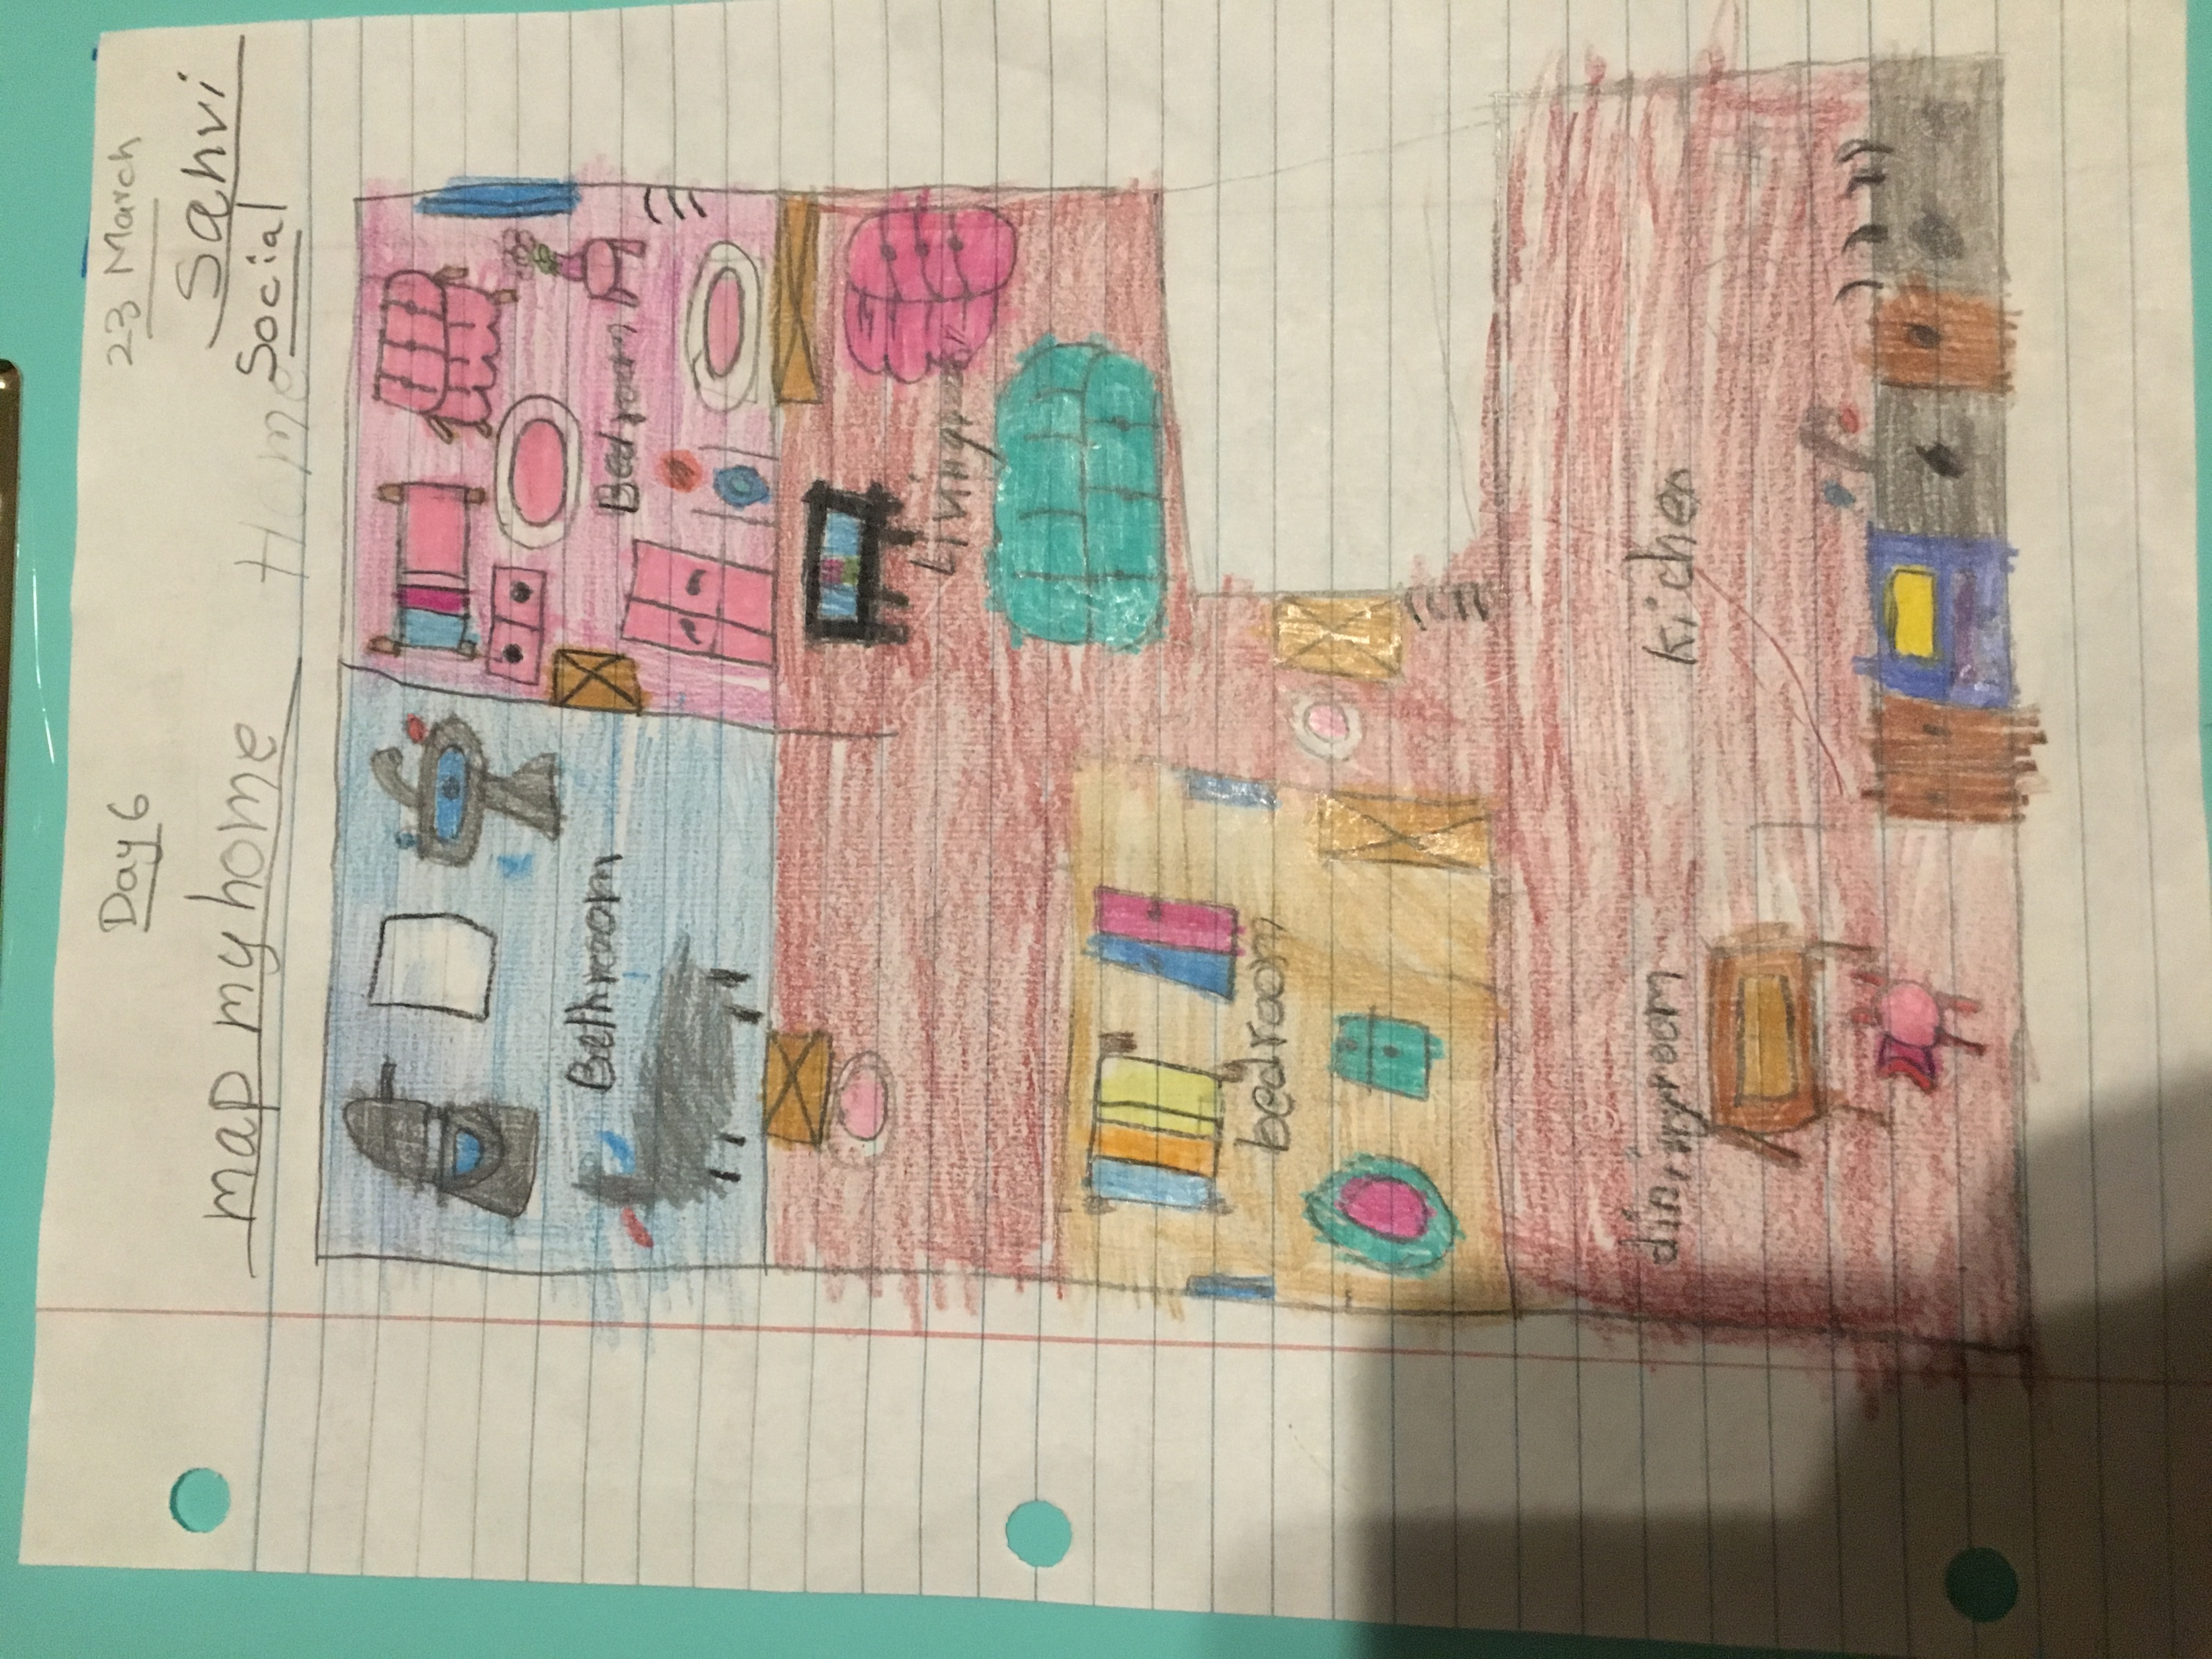 Day 6
23 March
Sanvi
map my home
Home
Social
Bethroom
Bedroom
Livingroom
bedroom
diningroom
kichen